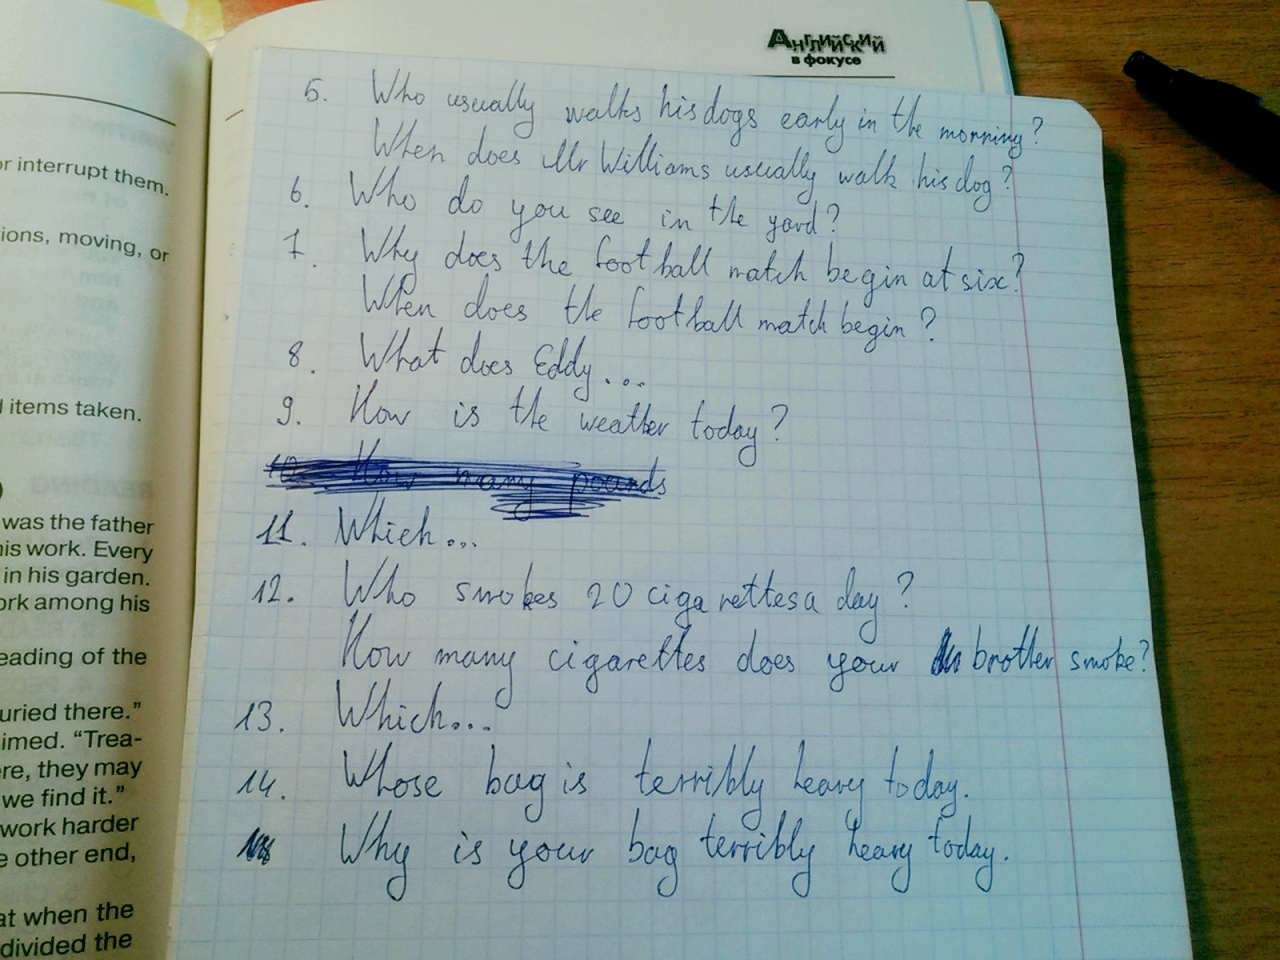 Английский
в фокусе
or interrupt them.
ions, moving, or
items taken.
was the father
his work. Every
in his garden.
ork among his
eading of the
uried there.”
imed. “Trea-
ere, they may
we find it.”
work harder
e other end,
at when the
divided the
5. Who usually walks his dogs early in the morning?
When does Mr Williams usually walk his dog?
6. Who do you see in the yard?
7. Why does the football match begin at six?
When does the football match begin?
8. What does Eddy...
9. How is the weather today?
10. How many pounds
11. Which...
12. Who smokes 20 cigarettes a day?
How many cigarettes does your brother smoke?
13. Which...
14. Whose bag is terribly heavy today.
Why is your bag terribly heavy today.